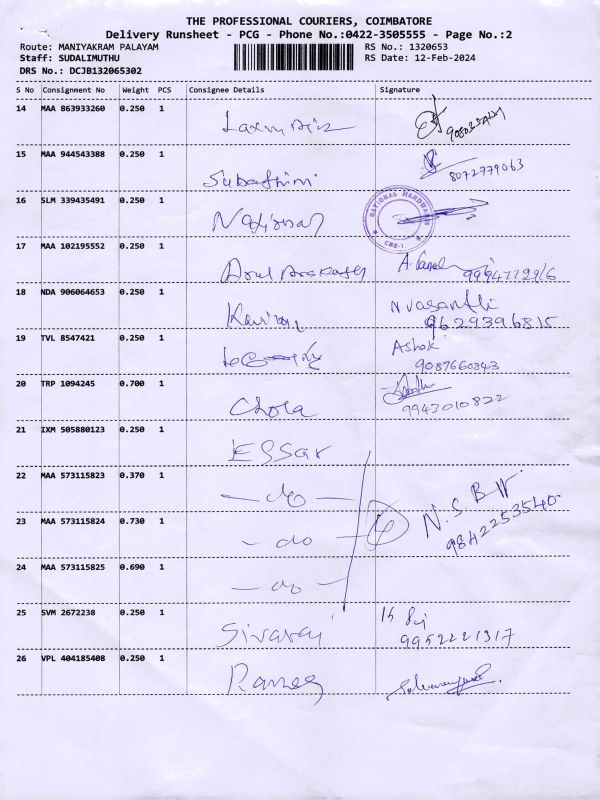 THE PROFESSIONAL COURIERS, COIMBATORE
Delivery Runsheet - PCG - Phone No.:0422-3505555 - Page No.:2
Route: MANIYAKRAM PALAYAM RS No.: 1320653
Staff: SUDALIMUTHU RS Date: 12-Feb-2024
DRS No.: DCJB132065302
S No Consignment No Weight PCS Consignee Details Signature
14 MAA 863933260 0.250 1
15 MAA 944543388 0.250 1 8072779063
16 SLM 339435491 0.250 1 National NATIONAL HARDWARE CBE-1.
17 MAA 102195552 0.250 1
18 NDA 906064653 0.250 1 N. Vasanthi
9629396815
19 TVL 8547421 0.250 1 Ashok
9087660843
20 TRP 1094245 0.700 1 Chola
9943010822
21 IXM 505880123 0.250 1 Essar
22 MAA 573115823 0.370 1 - do -
23 MAA 573115824 0.730 1 - do 4 N. S B
9842253540
24 MAA 573115825 0.690 1 - do -
25 SVM 2672238 0.250 1 Sivaraj
9952221317
26 VPL 404185408 0.250 1